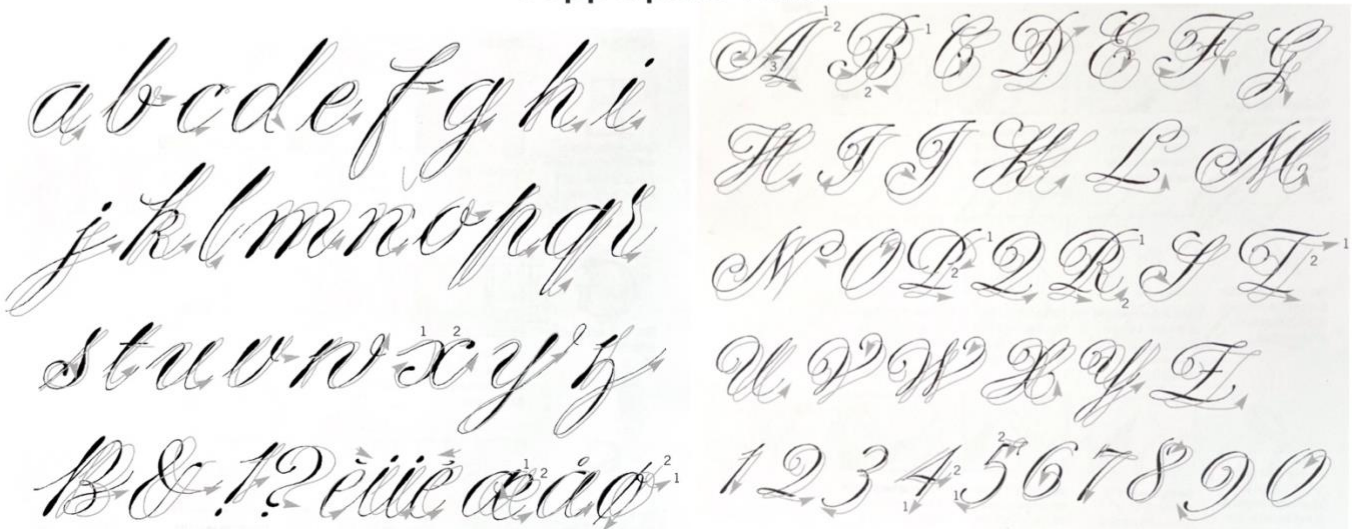 a b c d e f g h i
j k l m n o p q r
s t u v w x y z
ß & ! ? è ü é æ å ø
A B C D E F G
H I J K L M
N O P Q R S T
U V W X Y Z
1 2 3 4 5 6 7 8 9 0